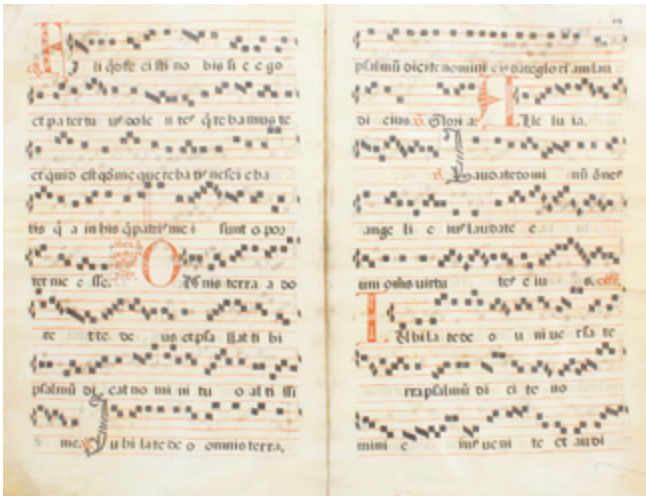 Fili q̄d fecisti nobis sic ego
et pater tuus dolentes q̄rebamus te
et quid est q̄d me querebatis nescieba
tis q̄a in his q̄ patris mei sunt opor
tet me esse. Omnis terra ado
ret te deus et psallat tibi
psalmū dicat nomini tuo altissi
me. Jubilate deo omnis terra,
psalmū dicite nomini eius date gloriam lau
di eius. Gloria. Alleluia.
Laudate dominū om̄es
angeli eius laudate e
um om̄s virtutes eius. offr̄.
Iubilate deo universa te
rra psalmū dicite no
mini eius venite et audi